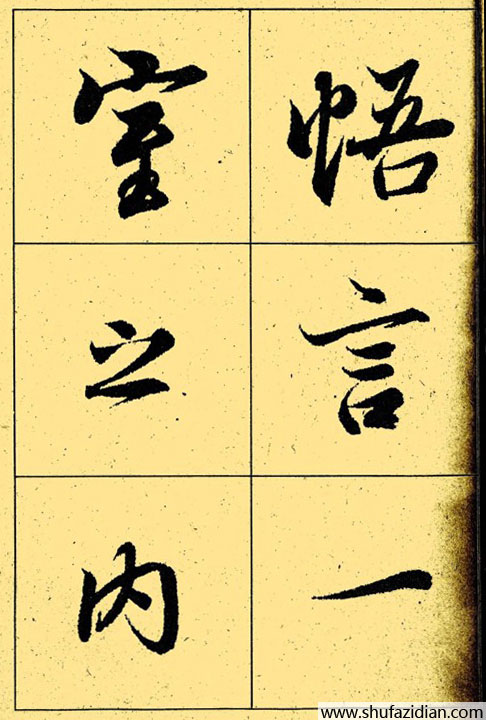 悟言一
室之内
www.shufazidian.com